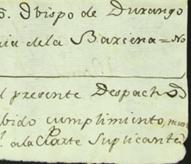 S. Obispo de Durango
de la Barzena = No
el presente Despacho
bido cumplimiento,
a la Parte Suplicante